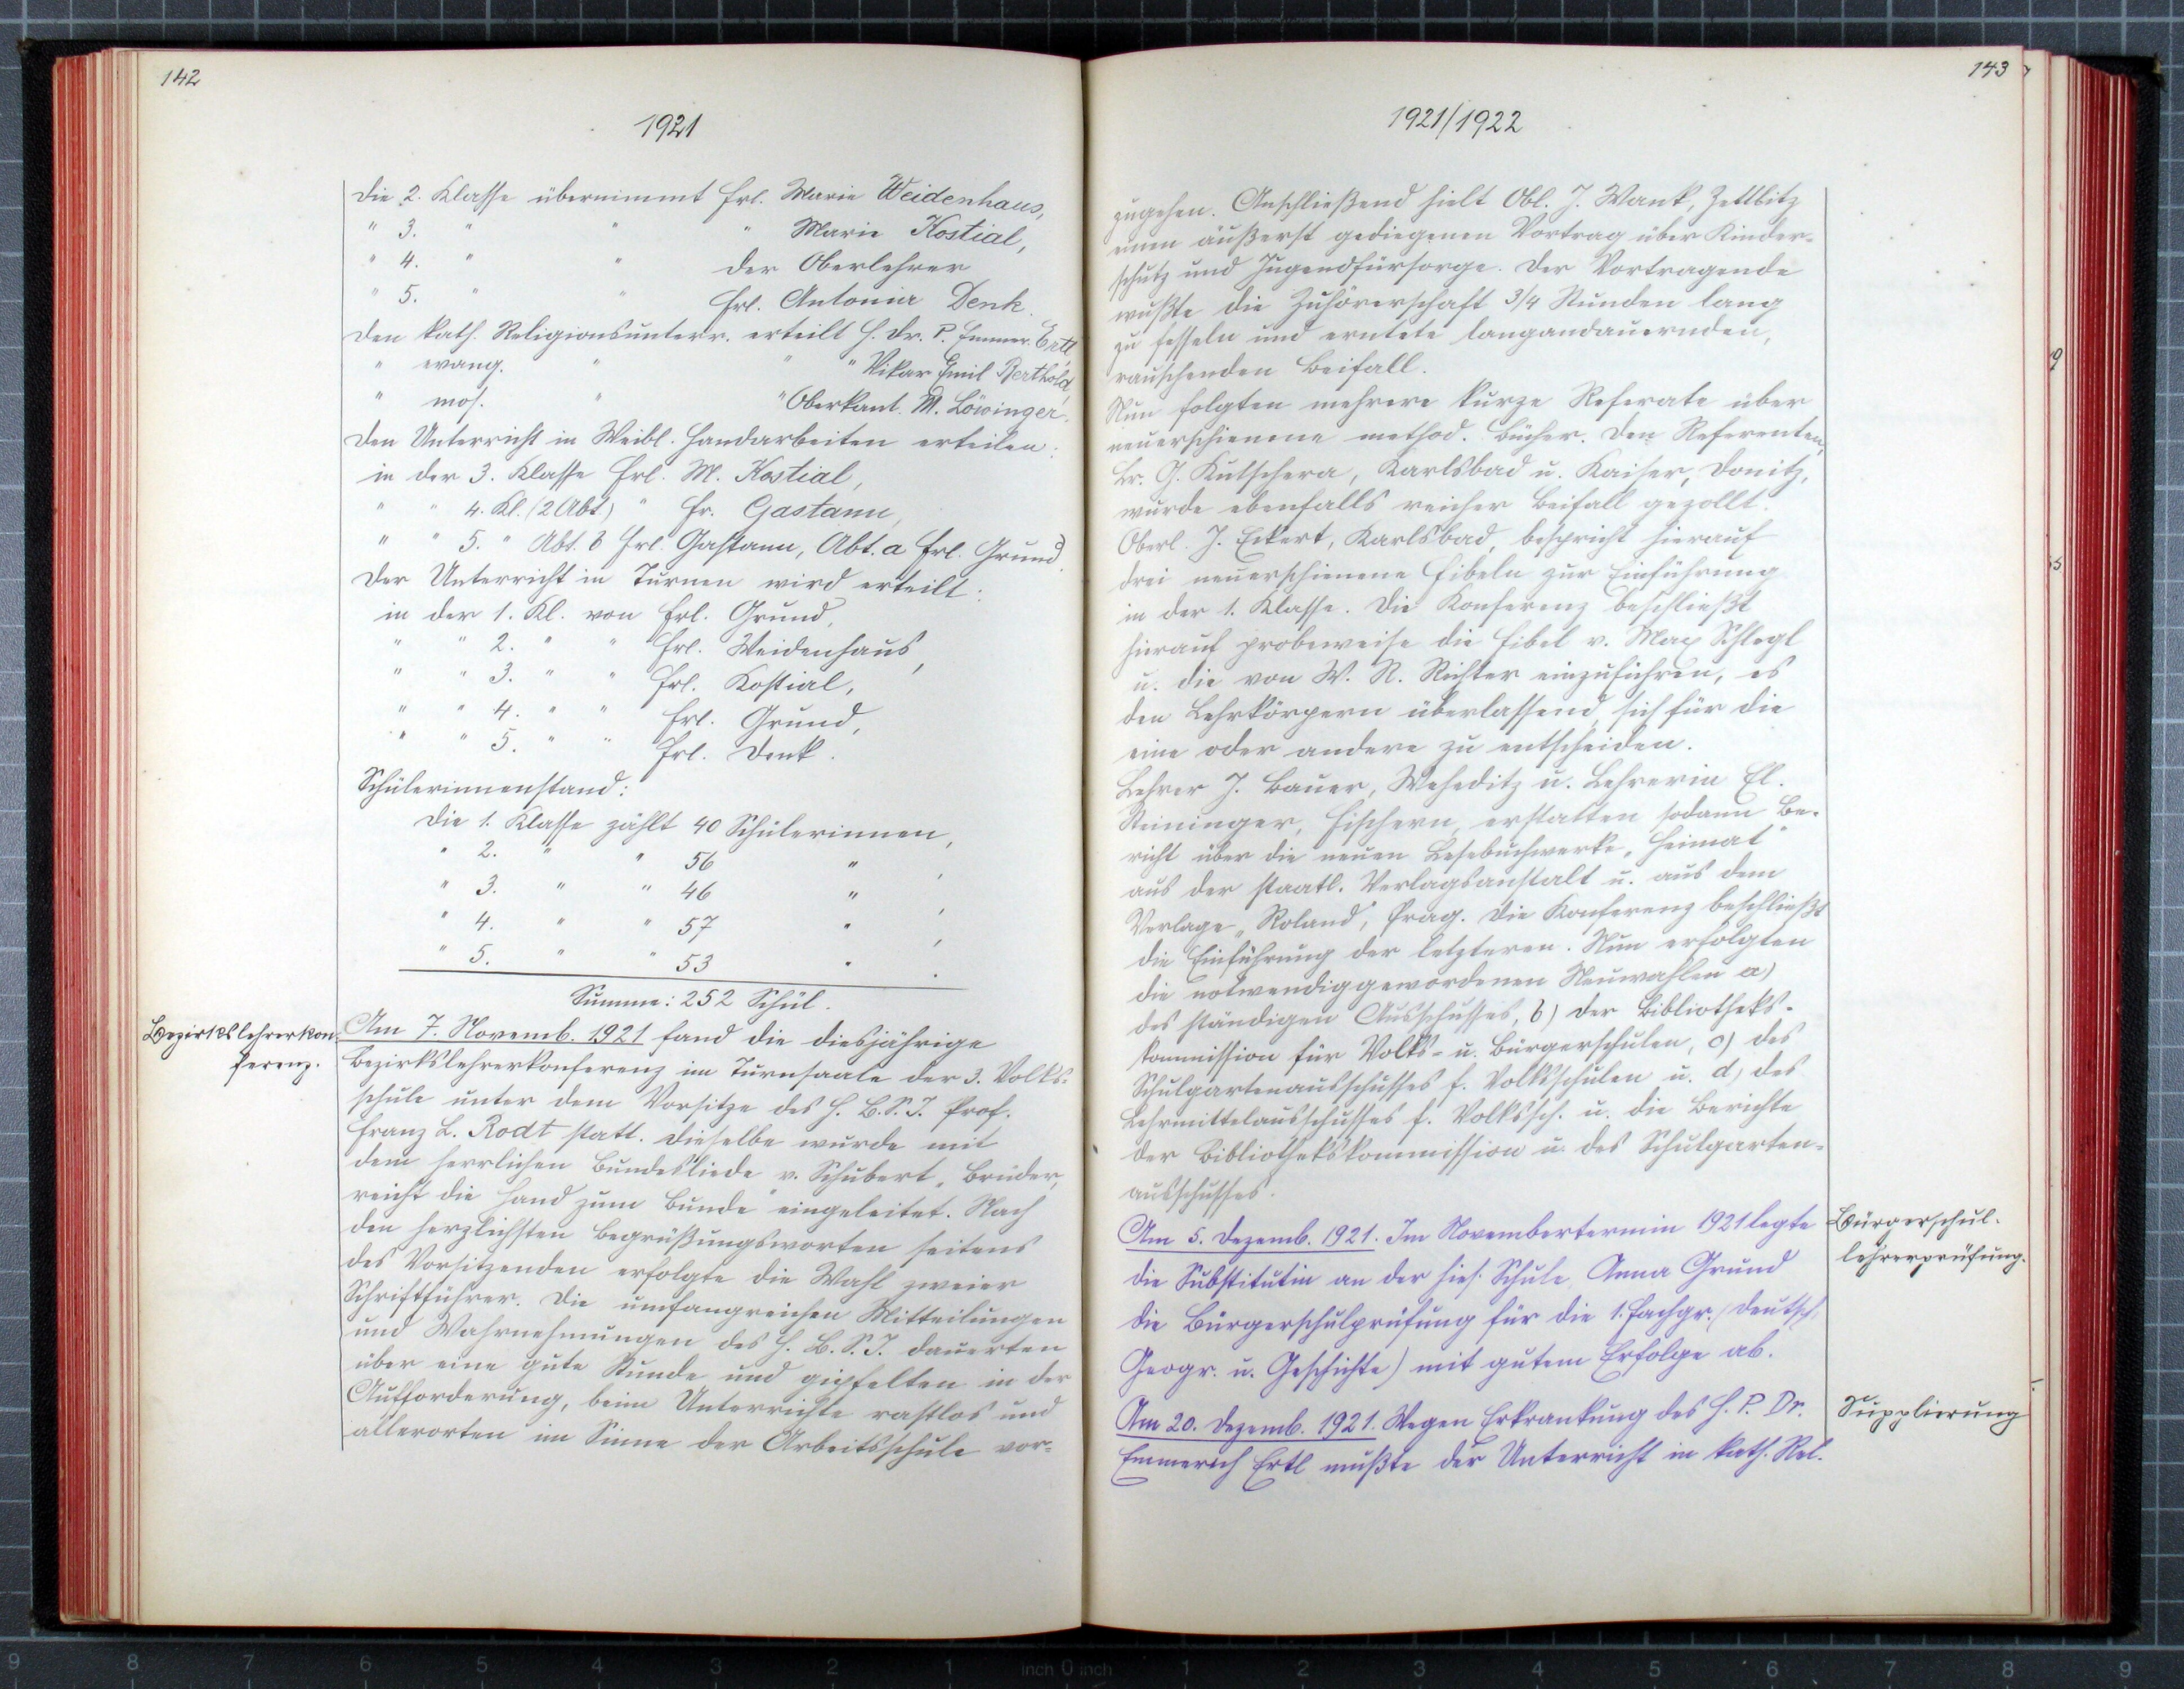 142
1921
Die 2. Klasse übernimmt Frl. Marie Weidenhaus,
" 3. " " " Marie Kostial,
" 4. " " der Oberlehrer
" 5. " " Frl. Antonia Denk.
Den kath. Religionsunterr. erteilt H. Dr. P. Emmer. Ertl,
" evang. " " " Vikar Emil Berthold,
" mos. " " Oberkant. M. Löwinger.
Den Unterricht in Weibl. Handarbeiten erteilen:
in der 3. Klasse Frl. M. Kostial,
" " 4. Kl. (2 Abt) " Fr. Gastann,
" " 5. " Abt. b Frl. Gastann, Abt. a Frl. Grund.
Der Unterricht in Turnen wird erteilt:
in der 1. Kl. von Frl. Grund,
" " 2. " " Frl. Weidenhaus,
" " 3. " " Frl. Kostial,
" " 4. " " Frl. Grund,
" " 5. " " Frl. Denk.
Schülerinnenstand:
Die 1. Klasse zählt 40 Schülerinnen,
" 2. " " 56 " ,
" 3. " " 46 " ,
" 4. " " 57 " ,
" 5. " " 53 " .
Summe: 252 Schül.
Bezirkslehrerkon-
ferenz.
Am 7. Novemb. 1921 fand die diesjährige
Bezirkslehrerkonferenz im Turnsaale der 3. Volks-
schule unter dem Vorsitze des H. B.S.I. Prof.
Franz L. Rodt statt. Dieselbe wurde mit
dem herrlichen Bundesliede v. Schubert „Brüder,
reicht die Hand zum Bunde" eingeleitet. Nach
den herzlichsten Begrüßungsworten seitens
des Vorsitzenden erfolgte die Wahl zweier
Schriftführer. Die umfangreichen Mitteilungen
und Wahrnehmungen des H. B.S.I. dauerten
über eine gute Stunde und gipfelten in der
Aufforderung, beim Unterrichte rastlos und
allerorten im Sinne der Arbeitsschule vor-
143
1921/1922
zugehen. Anschließend hielt Obl. J. Wank, Zettlitz
einen äußerst gediegenen Vortrag über Kinder-
schutz und Jugendfürsorge. Der Vortragende
wußte die Zuhörerschaft 3/4 Stunden lang
zu fesseln und erntete langandauernden,
rauschenden Beifall.
Nun folgten mehrere kurze Referate über
neuerschienene method. Bücher. Den Referenten,
Lr. G. Kutschera, Karlsbad u. Kaiser, Donitz,
wurde ebenfalls reicher Beifall gezollt.
Oberl. J. Eckert, Karlsbad, bespricht hierauf
drei neuerschienene Fibeln zur Einführung
in der 1. Klasse. Die Konferenz beschließt
hierauf probeweise die Fibel v. Max Schlegl
u. die von W. R. Richter einzuführen, es
den Lehrkörpern überlassend, sich für die
eine oder andere zu entscheiden.
Lehrer J. Bauer, Weheditz u. Lehrerin El.
Steininger, Fischern, erstatten sodann Be-
richt über die neuen Lesebuchwerke „Heimat"
aus der staatl. Verlagsanstalt u. aus dem
Verlage „Roland", Prag. Die Konferenz beschließt
die Einführung der letzteren. Nun erfolgten
die notwendiggewordenen Neuwahlen a)
des ständigen Ausschusses, b) der Bibliotheks-
kommission für Volks- u. Bürgerschulen, c) des
Schulgartenausschusses f. Volksschulen u. d) des
Lehrmittelausschusses f. Volkssch. u. die Berichte
der Bibliothekskommission u. des Schulgarten-
ausschusses.
Am 5. Dezemb. 1921. Im Novembertermin 1921 legte
Bürgerschul-
lehrerprüfung.
die Substitutin an der hies. Schule, Anna Grund
die Bürgerschulprüfung für die 1. Fachgr. (Deutsch,
Geogr. u. Geschichte) mit gutem Erfolge ab.
Am 20. Dezemb. 1921. Wegen Erkrankung des H. P. Dr.
Supplierung
Emmerich Ertl mußte der Unterricht in kath. Rel.
9 8 7 6 5 4 3 2 1 inch 0 inch 1 2 3 4 5 6 7 8 9